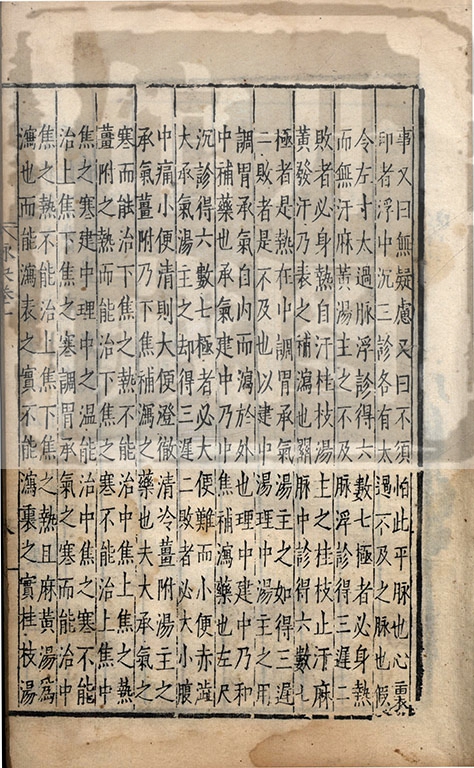 事又曰無疑慮又曰不須怕此平脉也心裏
印者浮中沉三診各有太過不及之脉也假
令左寸太過脉浮診得六數七極者必身熱
而無汗麻黃湯主之不及脉浮診得三遲二
敗者必身熱自汗桂枝湯主之桂枝止汗麻
黃發汗乃表之補瀉也關脉中診得六數七
極者是熱在中調胃承氣湯主之如得三遲
二敗者是不及也以建中湯理中湯主之用
調胃承氣自內而瀉於外也理中建中乃和
中補藥也承氣建中乃中焦補瀉藥也左尺
沉診得六數七極者必大便難而小便赤澁
大承氣湯主之却得三遲二敗者必大小腹
中痛小便清則大便澄徹清冷薑附湯主之
承氣薑附乃下焦補瀉之藥也夫大承氣之
寒而能治下焦之熱不能治中焦上焦之熱
薑附之熱而能治下焦之寒不能治上焦中
焦之寒建中理中之溫能治中焦之寒不能
治上焦下焦之寒調胃承氣之寒而能治中
焦之熱不能治上焦下焦之熱且麻黃湯為
瀉也而能瀉表之實不能瀉裏之實桂枝湯